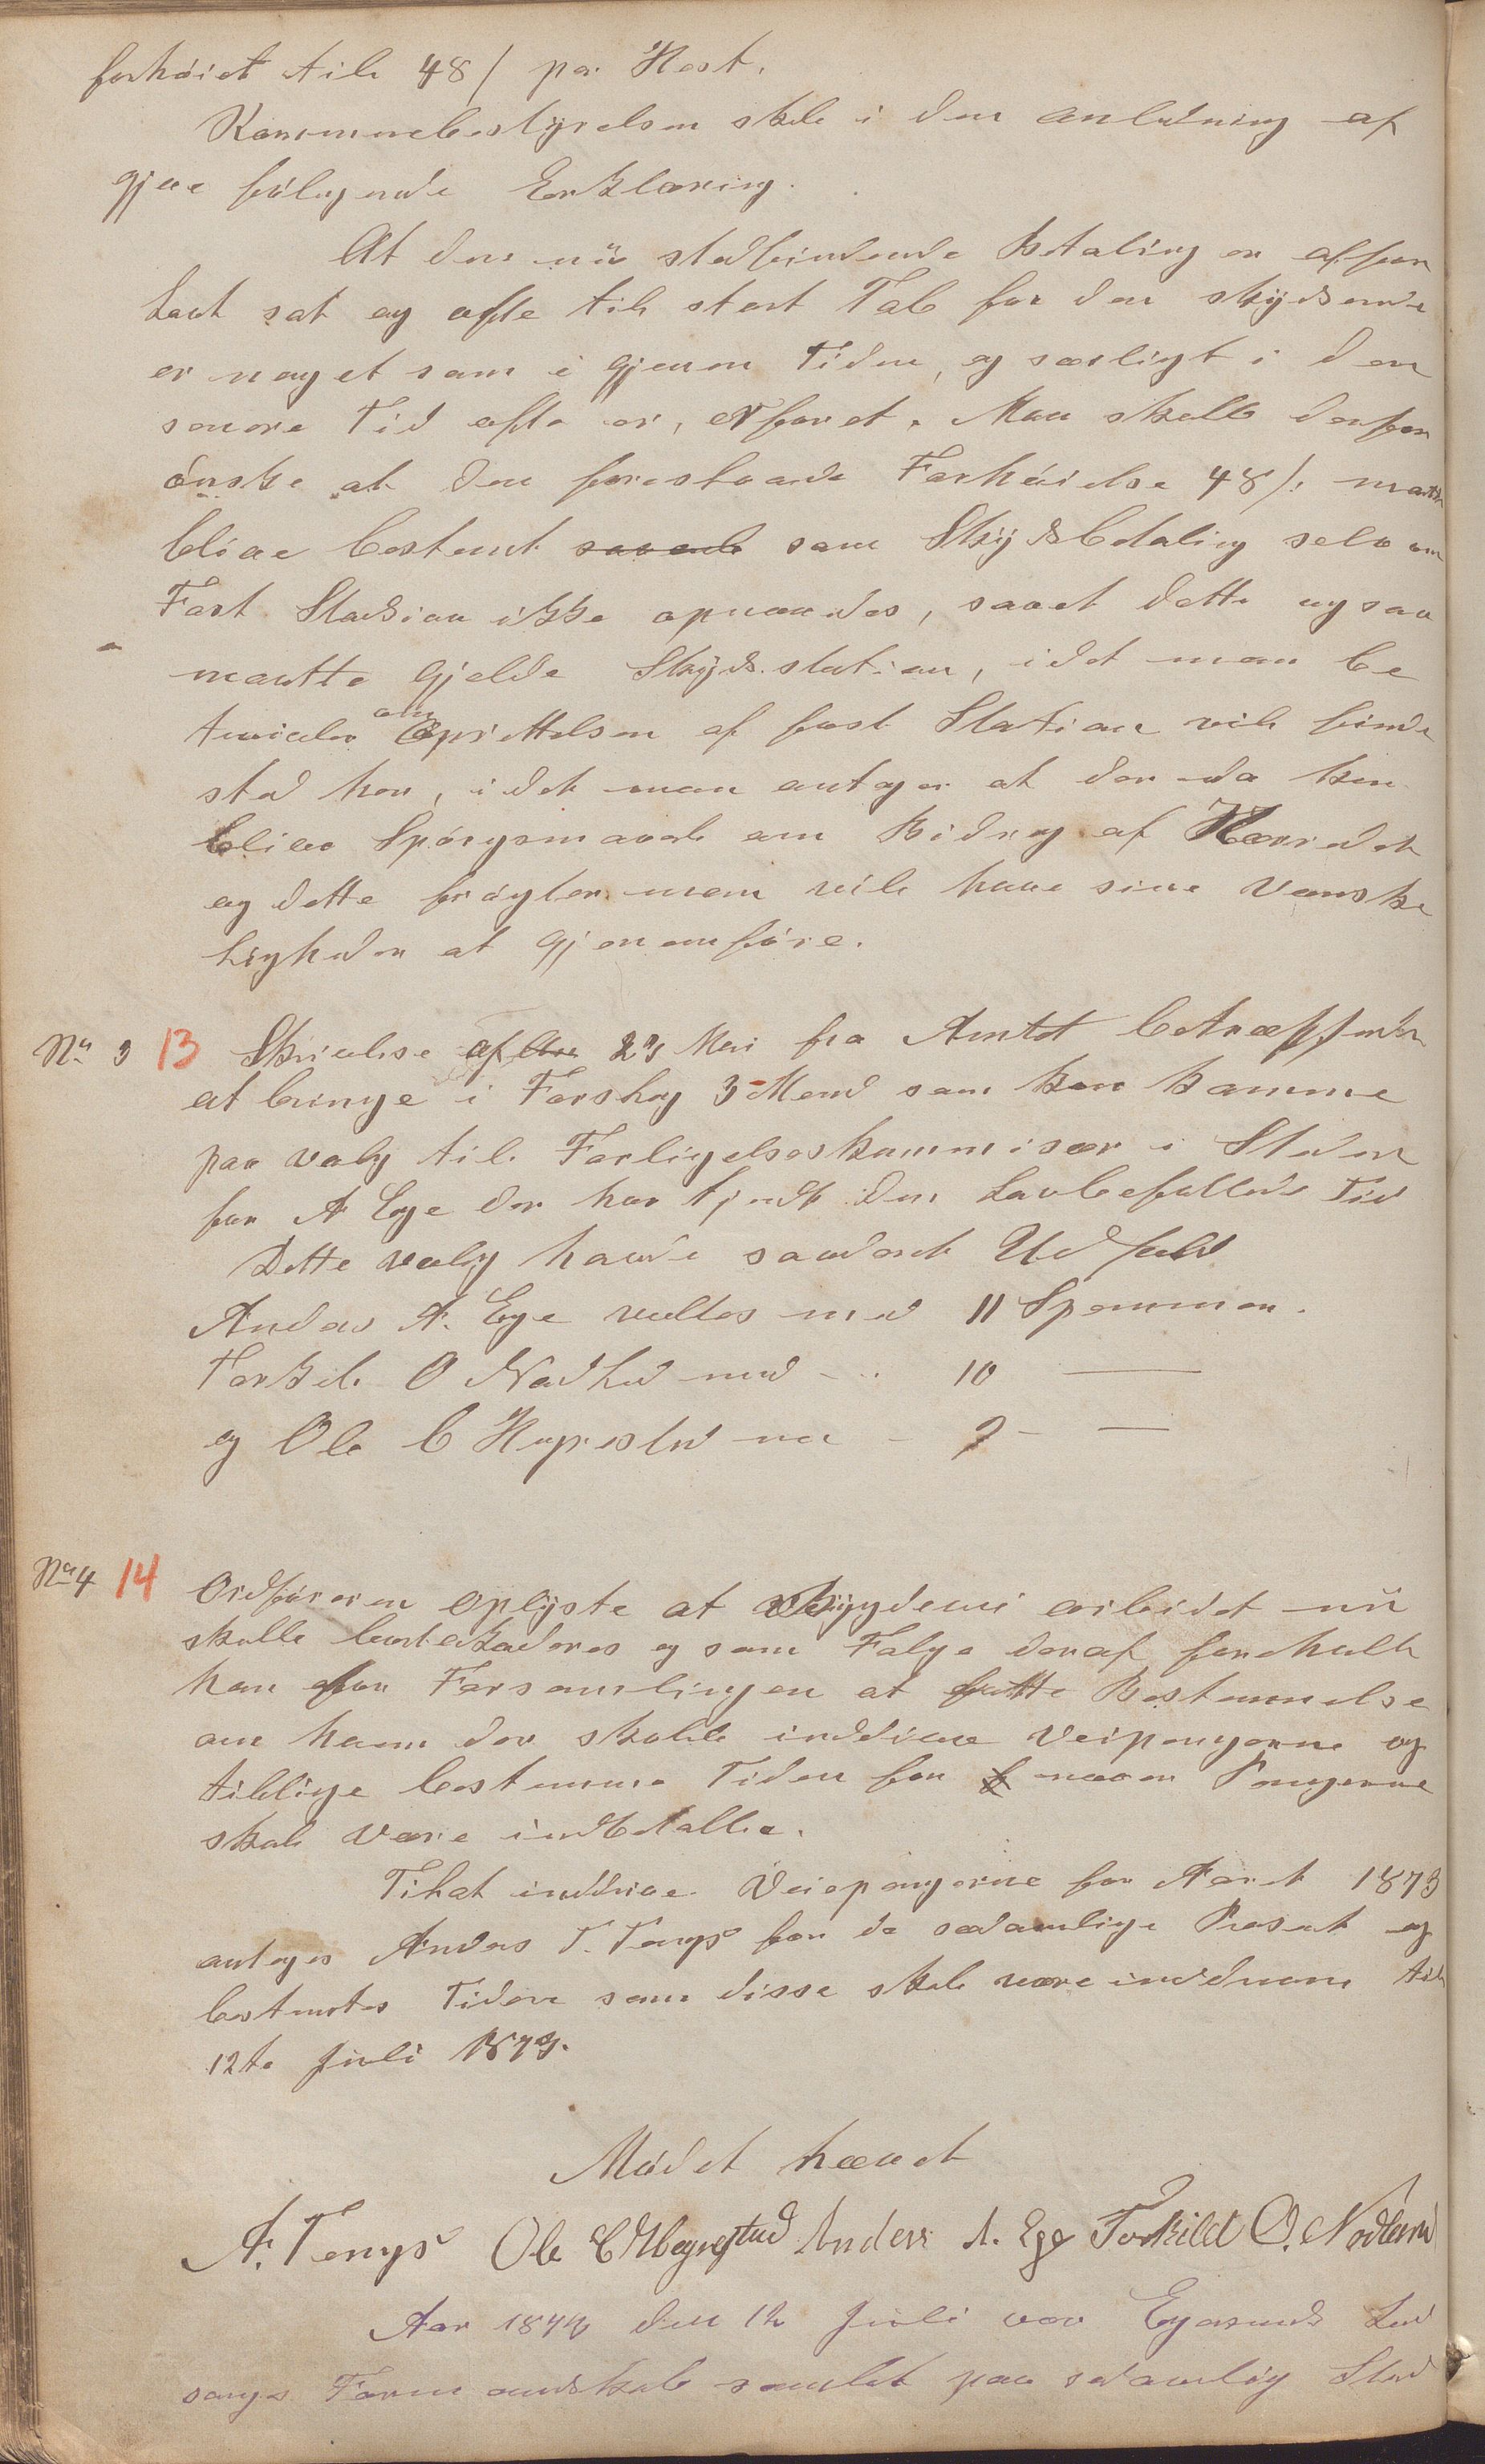 forhøiet till 48 / pr Hest.
Kommunebestyrelsen skle i den anledning af
gjøre følgende Erklæring.
At den nü stedfindende Betaling er alfor
Lavt sat og ofte till stort Tab for den skydsende
er noget som i gjenen Tiden, og særligt i den
senere Tid ofte er, erfaret. Man skulle derfor
ønske at den forestaaende Forhøielse 48/: maatte
blive bestemt som Skydsbetaling selv om
Fast Stasion ikke opnaaedes, samt dette ogsaa
maatte gjelde Skyds.station, idet man be
tvivler om Oprettelsen af fast Station vill finde
sted her, idet man antager at der da kun
bliver Spørgsmaal om Bidrag af Herredet
og dette frøgter man vill have sine Vanske
ligheder at gjenemføre.
No 3 13 Skrivelse af 23 Mai fra Amtet betræffende
at bringe i Forslag 3 Mend som kan komme
paa valg till Forligelseskommisær i Steden
for A Ege der har tjendt den Lovbefallede Tid
Dette valg havde saadant Udfald
Anders A. Ege valtes med 11 Stemmer.
Torkel O Nodland med - .. 10 —
og Ole C Hegrestad me - 9 - —
No 4 14 Ordføreren oplyste at arbeidet nü
skulle og som Følge deraf foreholt
han for Forsamlingen at fatte Bestemmelse
om hvem der skulle inddrive Veipengerne og
tillige bestemme Tiden for naar Pengerne
skal være indbetalte.
Till at inddrive Veiepengerne for Aaret 1873
antoges Anders T. Tengs for de sedvanlige Prosent og
bestemtes Tiden som disse skal være inddrevne till
12te Juli 1873.
Mødet hævet
A. Tengs Ole C Hegrestad Anders A. Ege Torkild O. Nodland
Aar 1873 den 12 Juli var Egersunds Lad
sogns Formandskab samlet paa sedvanlig Sted